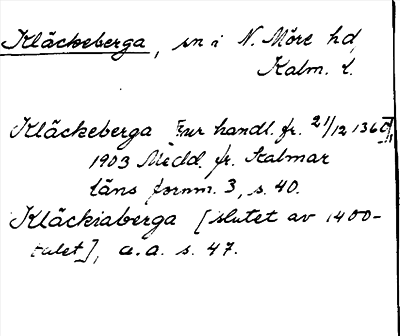 Kläckeberga, sn i N. Möre hd,
Kalm. l.
Kläckeberga ur handl. fr. 21/12 1360
1903 Medd. fr. Kalmar
läns fornm. 3, s. 40.
Kläckiaberga [slutet av 1400-
talet], a.a. s. 47.